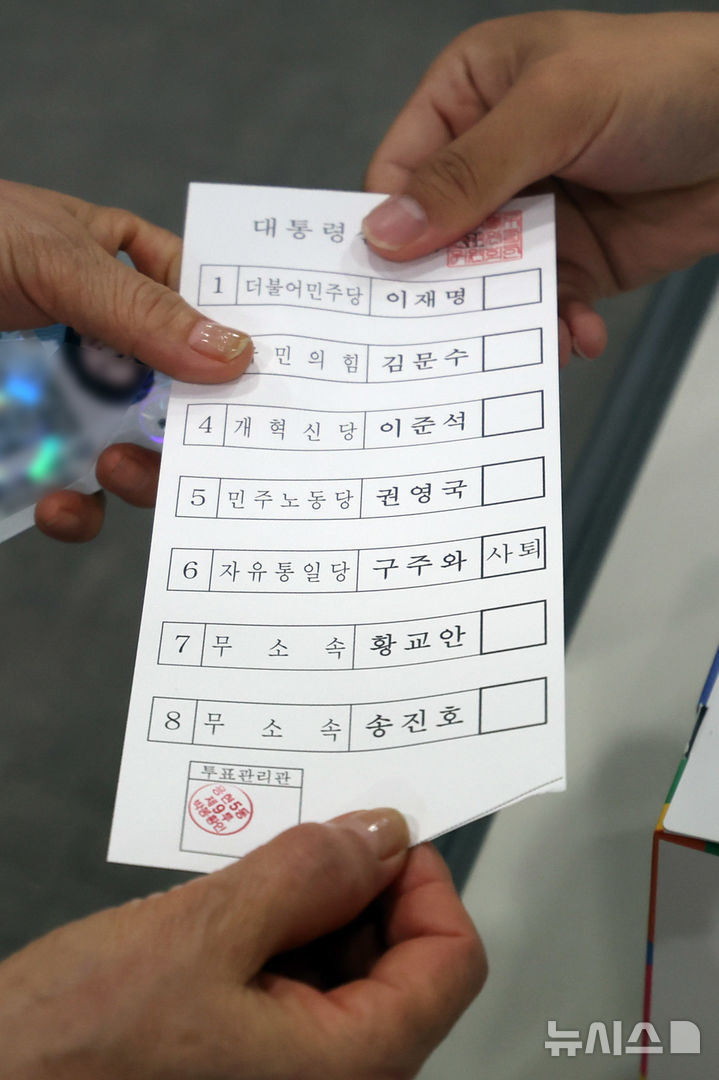 대통령
1 더불어민주당 이재명
민의힘 김문수
4 개혁신당 이준석
5 민주노동당 권영국
6 자유통일당 구주와 사퇴
7 무소속 황교안
8 무소속 송진호
투표관리관
제9투
뉴시스